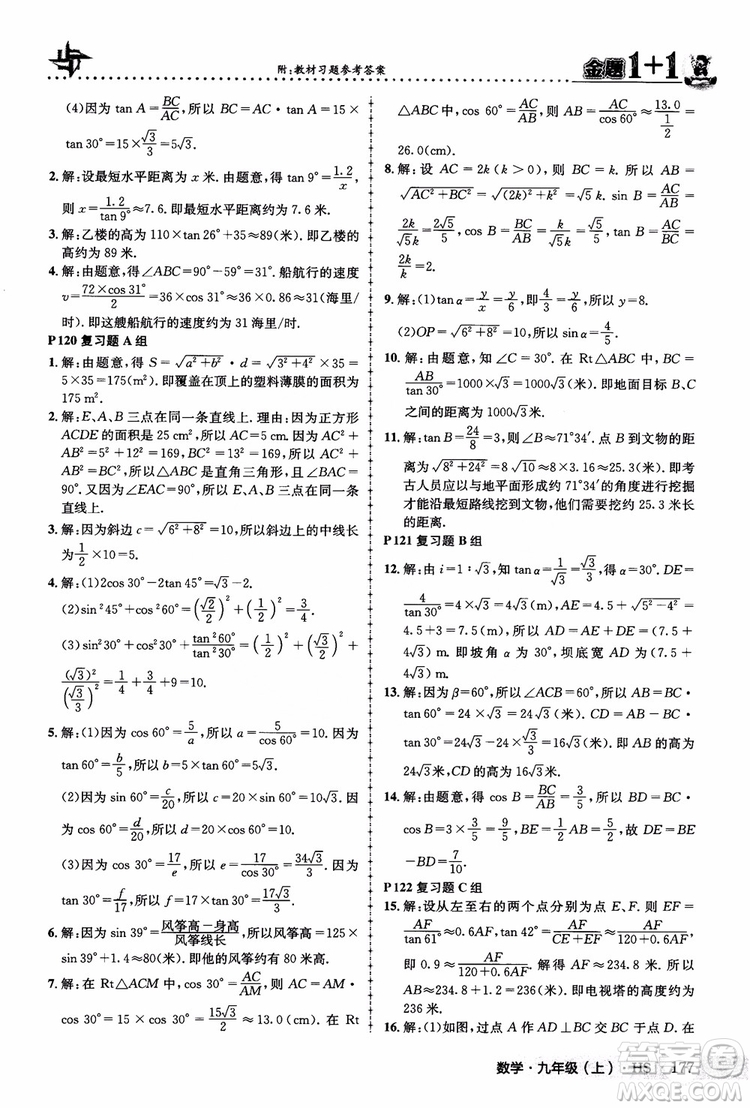 附:教材习题参考答案
金题1+1
(4)因为 tan A = BC/AC, 所以 BC = AC ×
tan 30° = 15 × √3/3 = 5√3.
2. 解:设最短水平距离为 x 米. 由题意, 得 tan 9° = 1.2/x,
则 x = 1.2/tan 9° ≈ 7.6. 即最短水平距离为 7.6 米.
3. 解:乙楼的高为 110×tan 26°+35≈89(米). 即乙楼的
高约为 89 米.
4. 解:由题意, 得∠ABC=90°-59°=31°. 船航行的速度
v = 72×cos 31°/2 = 36×cos 31° ≈ 36×0.86≈31(海里/
时). 即这艘船航行的速度约为 31 海里/时.
P120 复习题 A 组
1. 解:由题意, 得 S = √(a²+b²) · d = √(3²+4²) × 35 =
5×35=175. 即覆盖在顶上的塑料薄膜的面积为
175 m².
2. 解:E、A、B 三点在同一条直线上. 理由:因为正方形
ACDE 的面积是 25 cm², 所以 AC² = 25. 因为 AC² +
AB² = 25 + 12² = 169, BC² = 13² = 169, 所以 AC² +
AB² = BC², 所以△ABC 是直角三角形, 所以∠BAC=
90°. 又因为∠EAC=90°, 所以 E、A、B 三点在同一条
直线上.
3. 解:因为斜边 c = √(6²+8²) = 10, 所以斜边上的中线长
为 1/2 × 10 = 5.
4. 解:(1)2cos 30° - 2tan 45° = 2 × √3/2 - 2 × 1 = √3 - 2.
(2)sin²45° + cos²45° = (√2/2)² + (√2/2)² = 1.
(3)sin²30° + cos²30° + tan²60°/tan²30° = (1/2)² + (√3/2)² +
(√3)²/(√3/3)² = 1/4 + 3/4 + 9 = 10.
5. 解:(1)因为 cos 60° = 5/a, 所以 a = 5/cos 60° = 10. 因为
tan 60° = b/5, 所以 b = 5×tan 60° = 5√3.
(2)因为 sin 60° = d/20, 所以 d = 20×sin 60° = 10√3. 因为
cos 60° = c/20, 所以 c = 20×cos 60° = 10.
(3)因为 cos 30° = 17/e, 所以 e = 17/cos 30° = 34√3/3. 因为
tan 30° = f/17, 所以 f = 17×tan 30° = 17√3/3.
6. 解:因为 sin 39° = 风筝高-身高/风筝线长, 所以风筝高=125×
sin 39°+1.4≈80(米). 即他的风筝约有 80 米高.
7. 解:在 Rt△ACM 中, cos 50° = AC/AM, 则 AC = AM ·
cos 50° = 20.2 × cos 50° ≈ 13.0 (cm). 在 Rt
△ABC 中, cos 60° = AC/AB, AB = AC/cos 60° ≈ 13.0/(1/2) =
26.0(cm).
8. 解:设 AC = 2k(k>0), 则 BC = k. 所以 AB =
√(AC²+BC²) = √((2k)²+k²) = √5 k. sin B = AC/AB =
2k/√5k = 2√5/5, cos B = BC/AB = k/√5k = √5/5, tan B = AC/BC =
2k/k = 2.
9. 解:(1)tan α = y/x = y/6, 即 4/3 = y/6, 所以 y=8.
(2)OP = √(6²+8²) = 10, sin α = y/OP = 8/10 = 4/5.
10. 解:由题意, 得∠C = 30°. 在 Rt△ABC 中, BC =
AB/tan 30° = 1000×√3 = 1000√3(米). 即地面目标 B、C
之间的距离为 1000√3 米.
11. 解:tan B = 24/8 = 3, 所以∠B≈71°34′. 点 B 到文物的
√(8²+24²) = 8√10 ≈ 25.3(米). 即考
古人员应以与地平面形成约 71°34′的角度进行挖掘
才能沿最短路线挖到文物, 他们需要挖约 25.3 米长
的距离.
P121 复习题 B 组
12. 解:由 i = 1∶√3, 知 tan α = 1/√3 = √3/3, 得 α = 30°. FD =
4/tan 30° = 4√3, AD = AE + EF + FD = 4.5 + √(5²-4²) =
√3) m. 即坡角为 30°, 坝底宽为
13. 解:因为 β=60°, 所以∠ACB=60°. AB = BC ·
tan 60° = 24 × √3 = 24√3 (米). CD = AB - BC ·
tan 30° = 24√3 - 24 × √3/3 = 24√3 - 8√3 = 16√3 (米). 即 AB
为 24√3 米, CD 为 16√3 米.
14. 解:由题意, 得 cos B = BC/AB = 3/5, 所以 BD = BC ·
cos B = 3 × 3/5 = 9/5
- BD = 7/10.
P122 复习题 C 组
15. 解:设从左至右的两个点分别为点 D、E, 则 EF =
AF/tan 61°, tan 42° = AF/(CE+EF) = AF/
即 0.9 ≈
AB≈234.8+1.5≈236(米). 即电视塔的高度约为
236 米.
16. 解:(1)如图, 过点 A 作 AD⊥BC 交 BC 于点 D. 在
数学·九年级(上)·HS 177